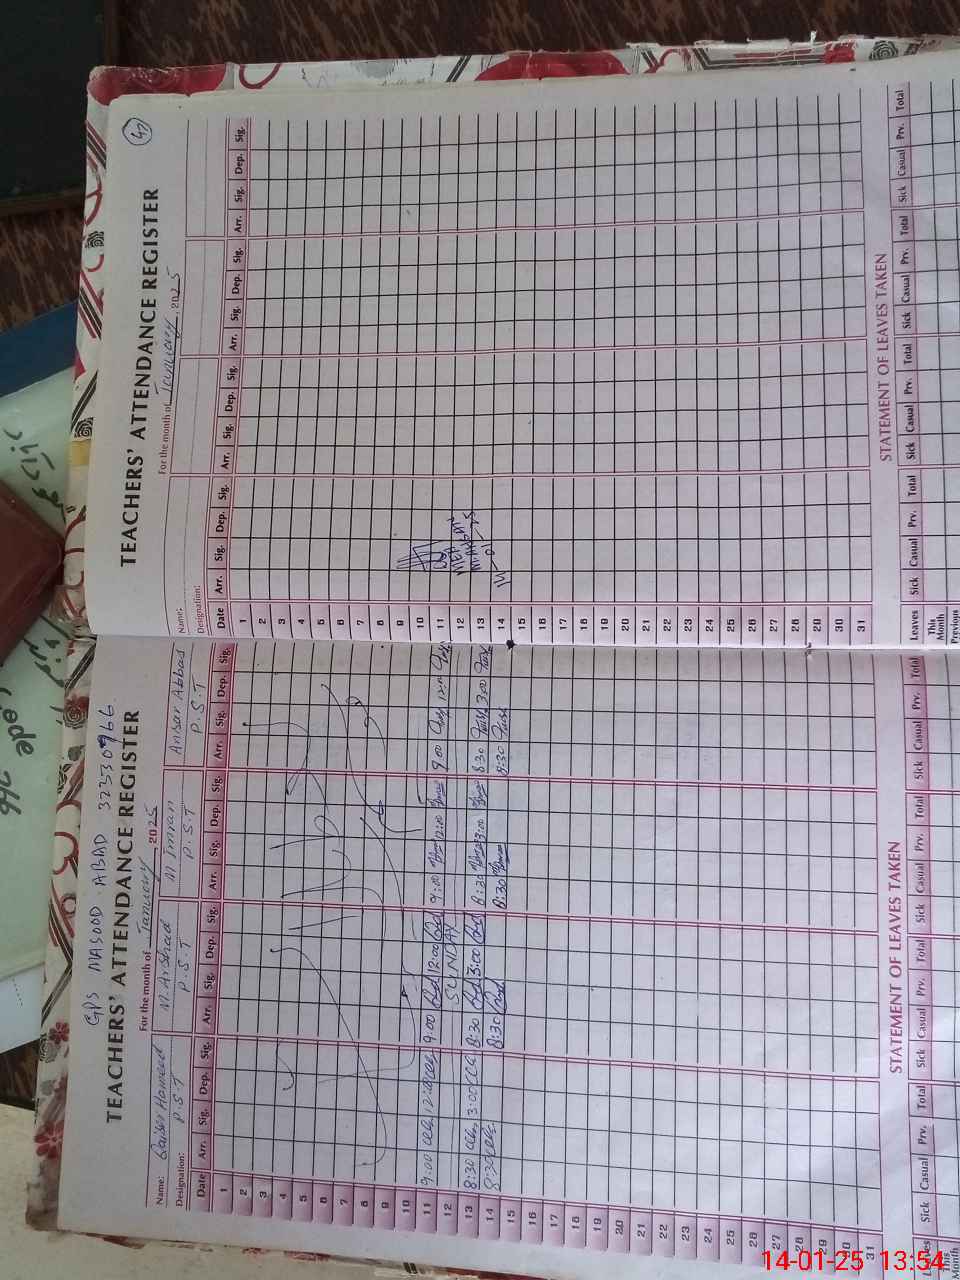 GPS MASOOD ABAD 32530966
TEACHERS' ATTENDANCE REGISTER
For the month of January, 2025
Name: Qaiser Hameed M. Arshad M. Imran Ansar Abbas
Designation: P.S.T P.S.T P.S.T P.S.T
Date Arr. Sig. Dep. Sig. Arr. Sig. Dep. Sig. Arr. Sig. Dep. Sig. Arr. Sig. Dep. Sig.
1
2
3
4
5
6
7
8
9
10
11 9:00 12:00 9:00 12:00 9:00 12:00 9:00 12:00
12 SUNDAY
13 8:30 3:00 8:30 3:00 8:30 3:00 8:30 3:00
14 8:30 8:30 8:30 8:30
15
16
17
18
19
20
21
22
23
24
25
26
27
28
29
30
31
STATEMENT OF LEAVES TAKEN
Leaves Sick Casual Prv. Total Sick Casual Prv. Total Sick Casual Prv. Total Sick Casual Prv. Total
This
Month
47
TEACHERS' ATTENDANCE REGISTER
For the month of January, 2025
Name:
Designation:
Date Arr. Sig. Dep. Sig. Arr. Sig. Dep. Sig. Arr. Sig. Dep. Sig. Arr. Sig. Dep. Sig.
1
2
3
4
5
6
7
8
9
10
11
12 MEA
13
14 14-01-25
15
16
17
18
19
20
21
22
23
24
25
26
27
28
29
30
31
STATEMENT OF LEAVES TAKEN
Leaves Sick Casual Prv. Total Sick Casual Prv. Total Sick Casual Prv. Total Sick Casual Prv. Total
This
Month
Previous
14-01-25 13:54